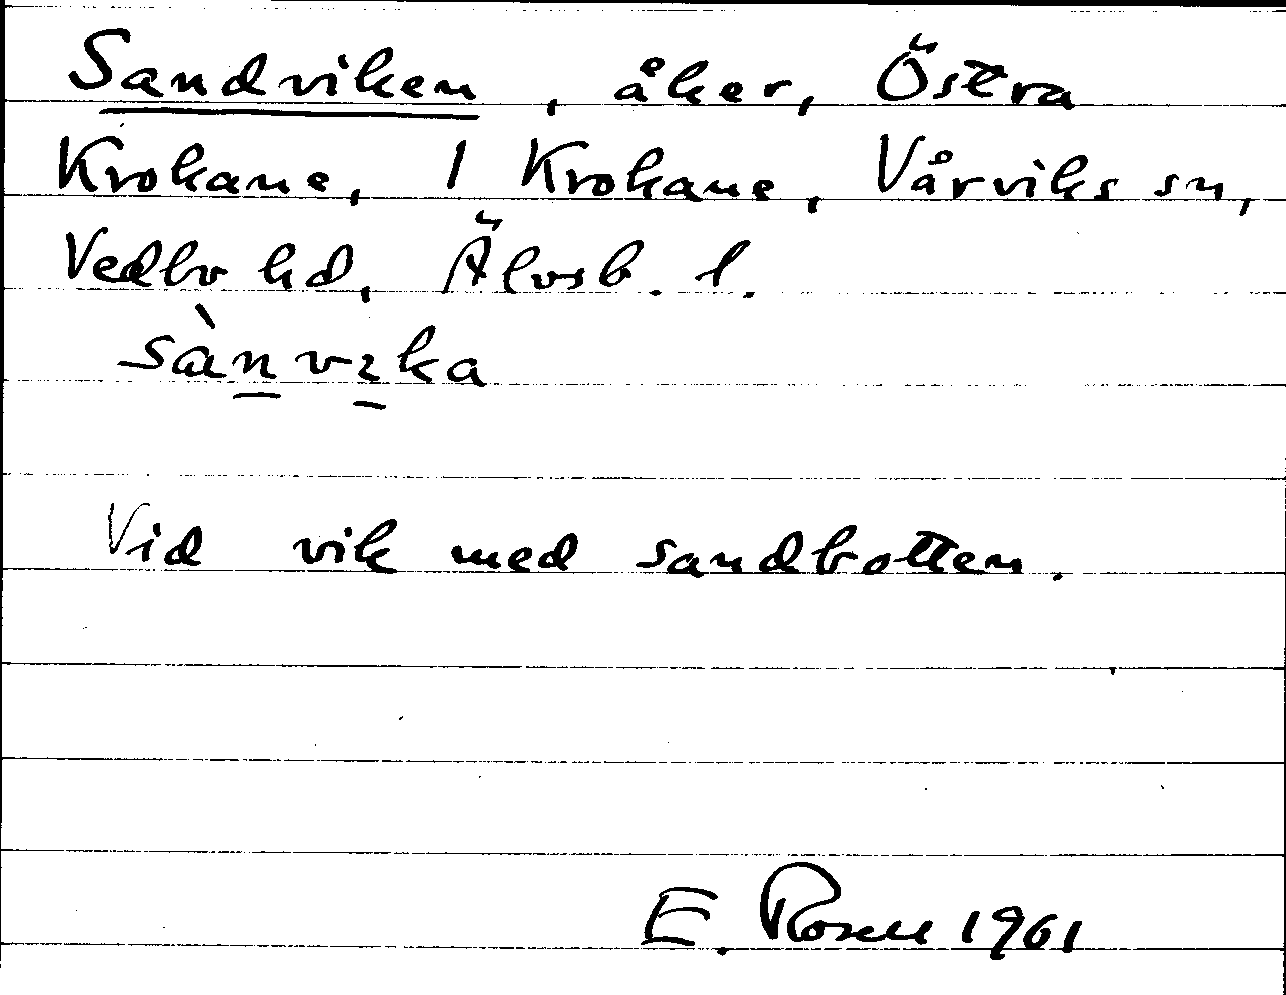 Sandviken, åker, Östra
Krokane, 1 Krokane, Vårviks sn,
Vedbo hd, Älvsb. l.
sàn vɩka
Vid vik med sandbotten.
E. Rosell 1961